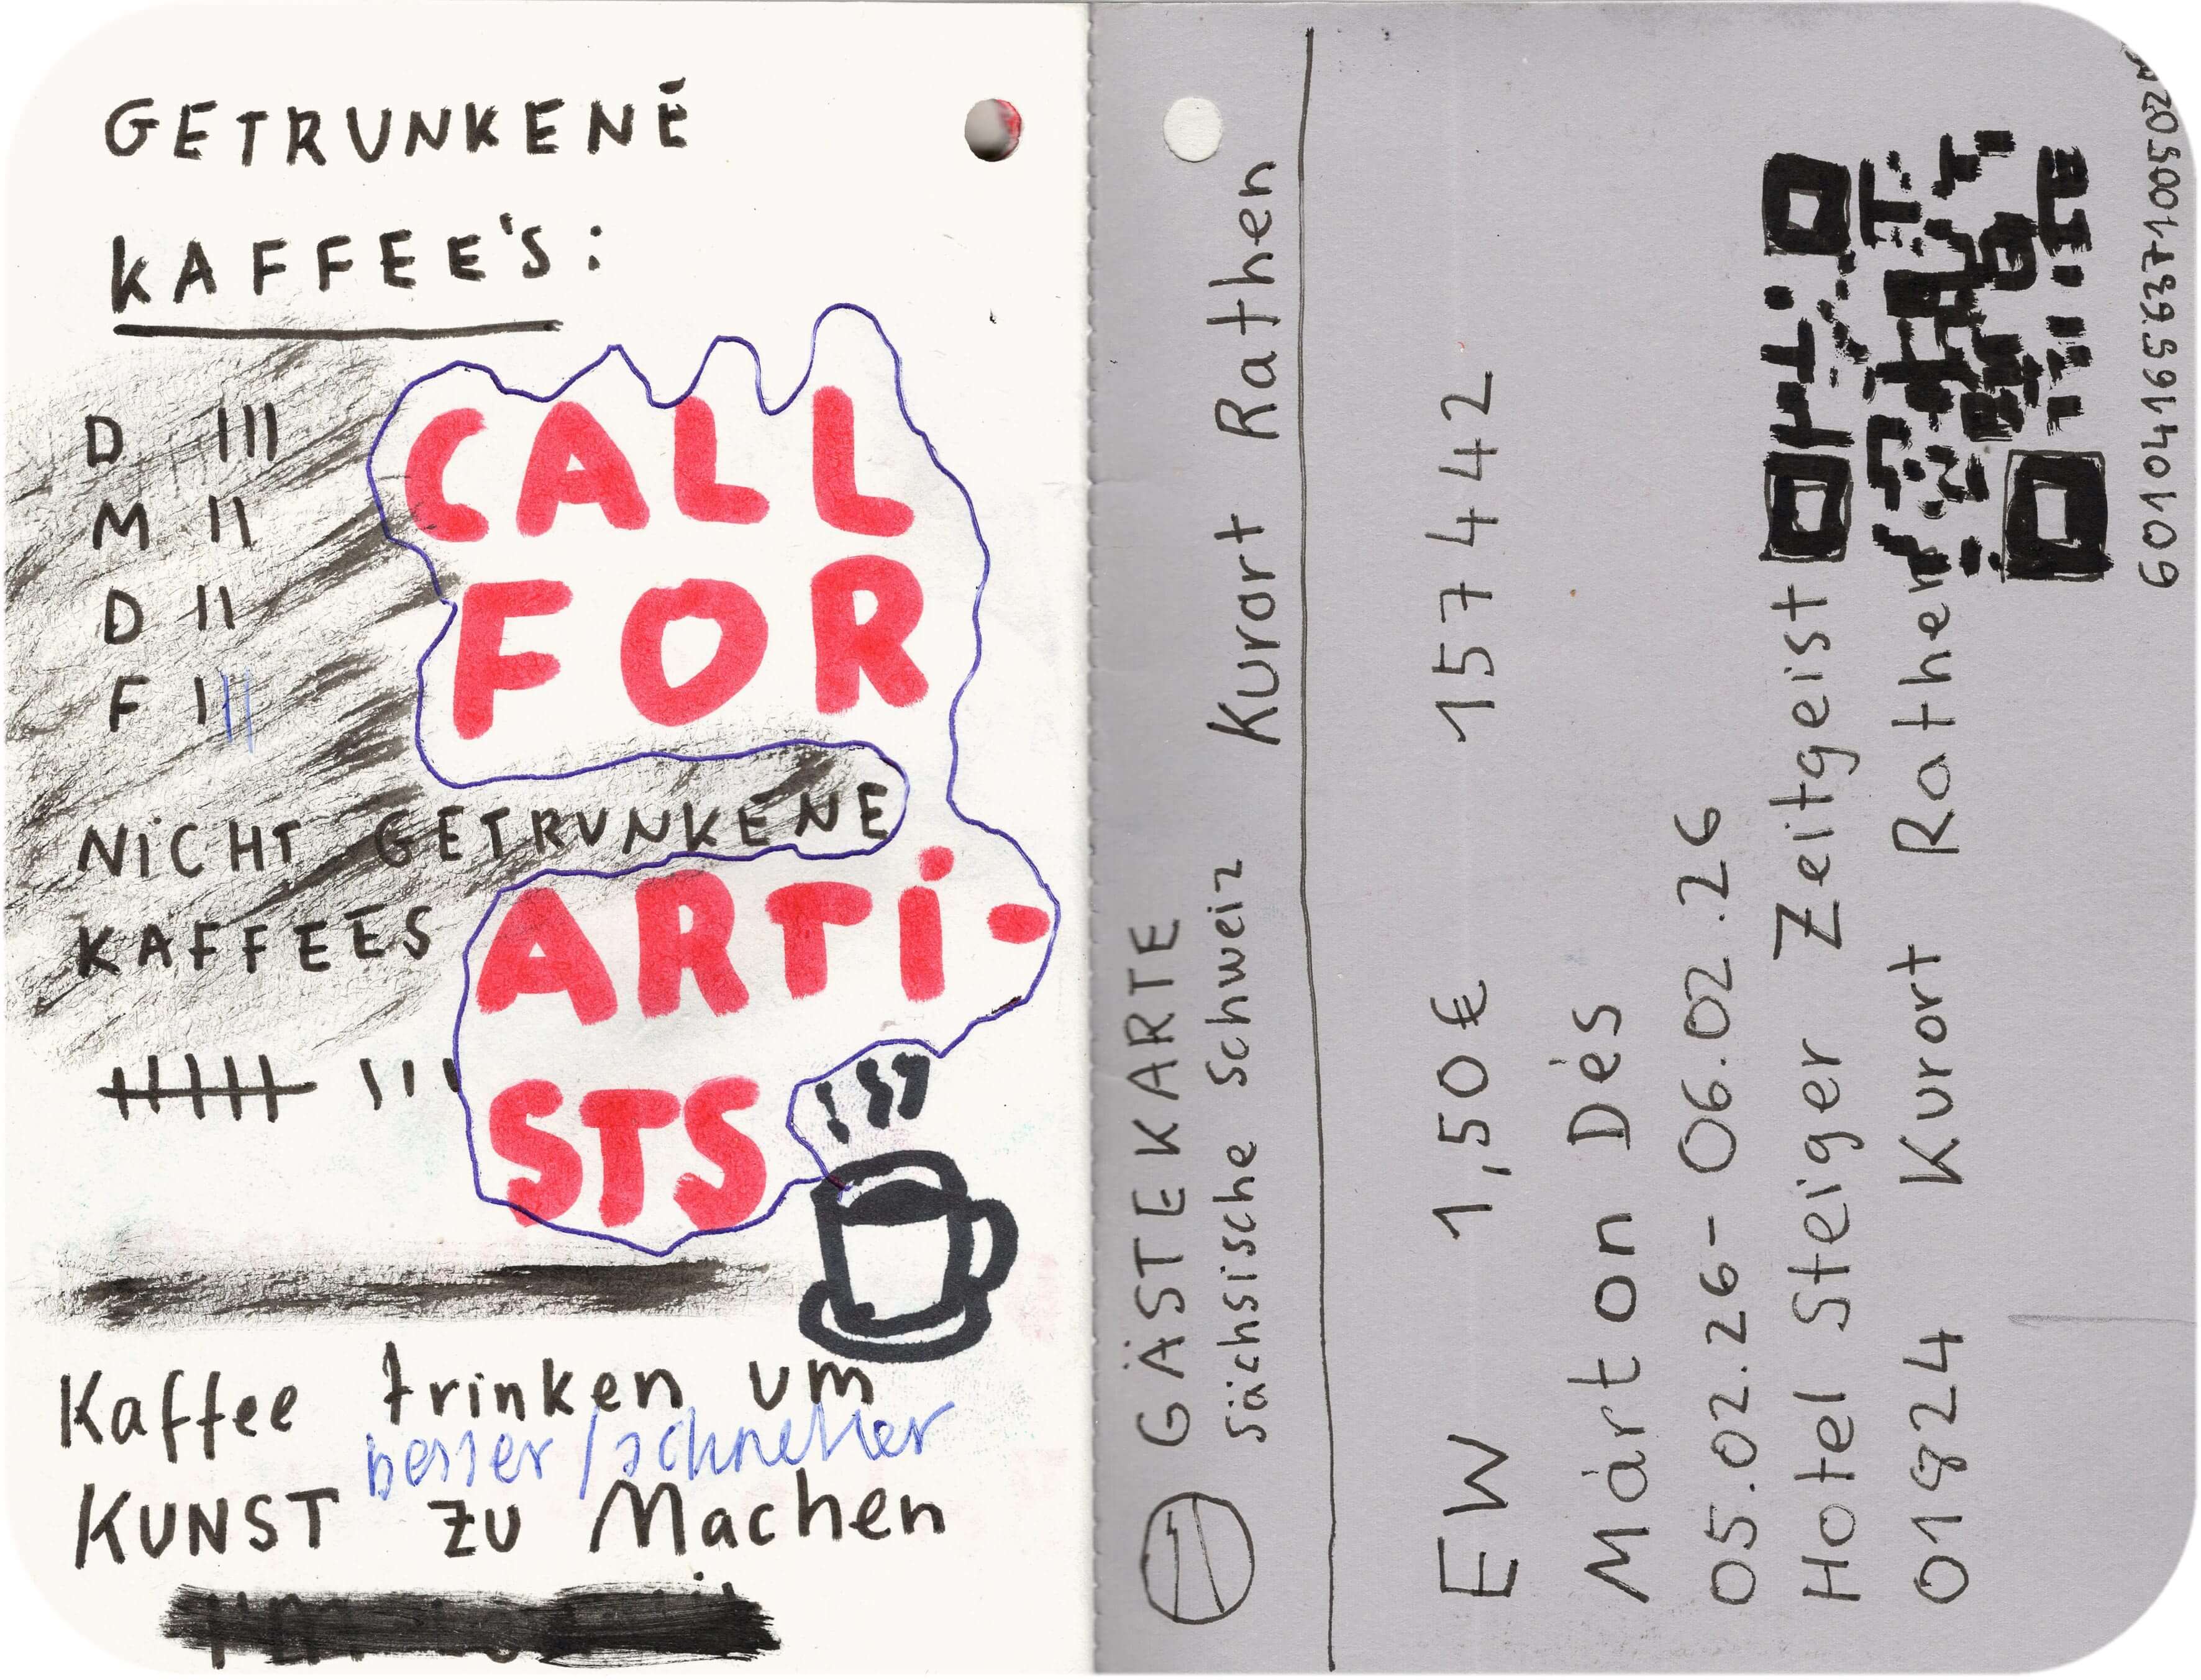 GETRUNKENE
KAFFEE'S:
D III
M II
D II
F III
CALL
FOR
NiCHT GETRUNKENE
KAFFEES
ARTi-
STS
Kaffee trinken um
besser/schneller
KUNST zu Machen
GÄSTEKARTE
Sächsische Schweiz Kurort Rathen
EW 1,50€ 157442
Márton Dés
05.02.26-06.02.26
Hotel Steiger Zeitgeist
01824 Kurort Rathen